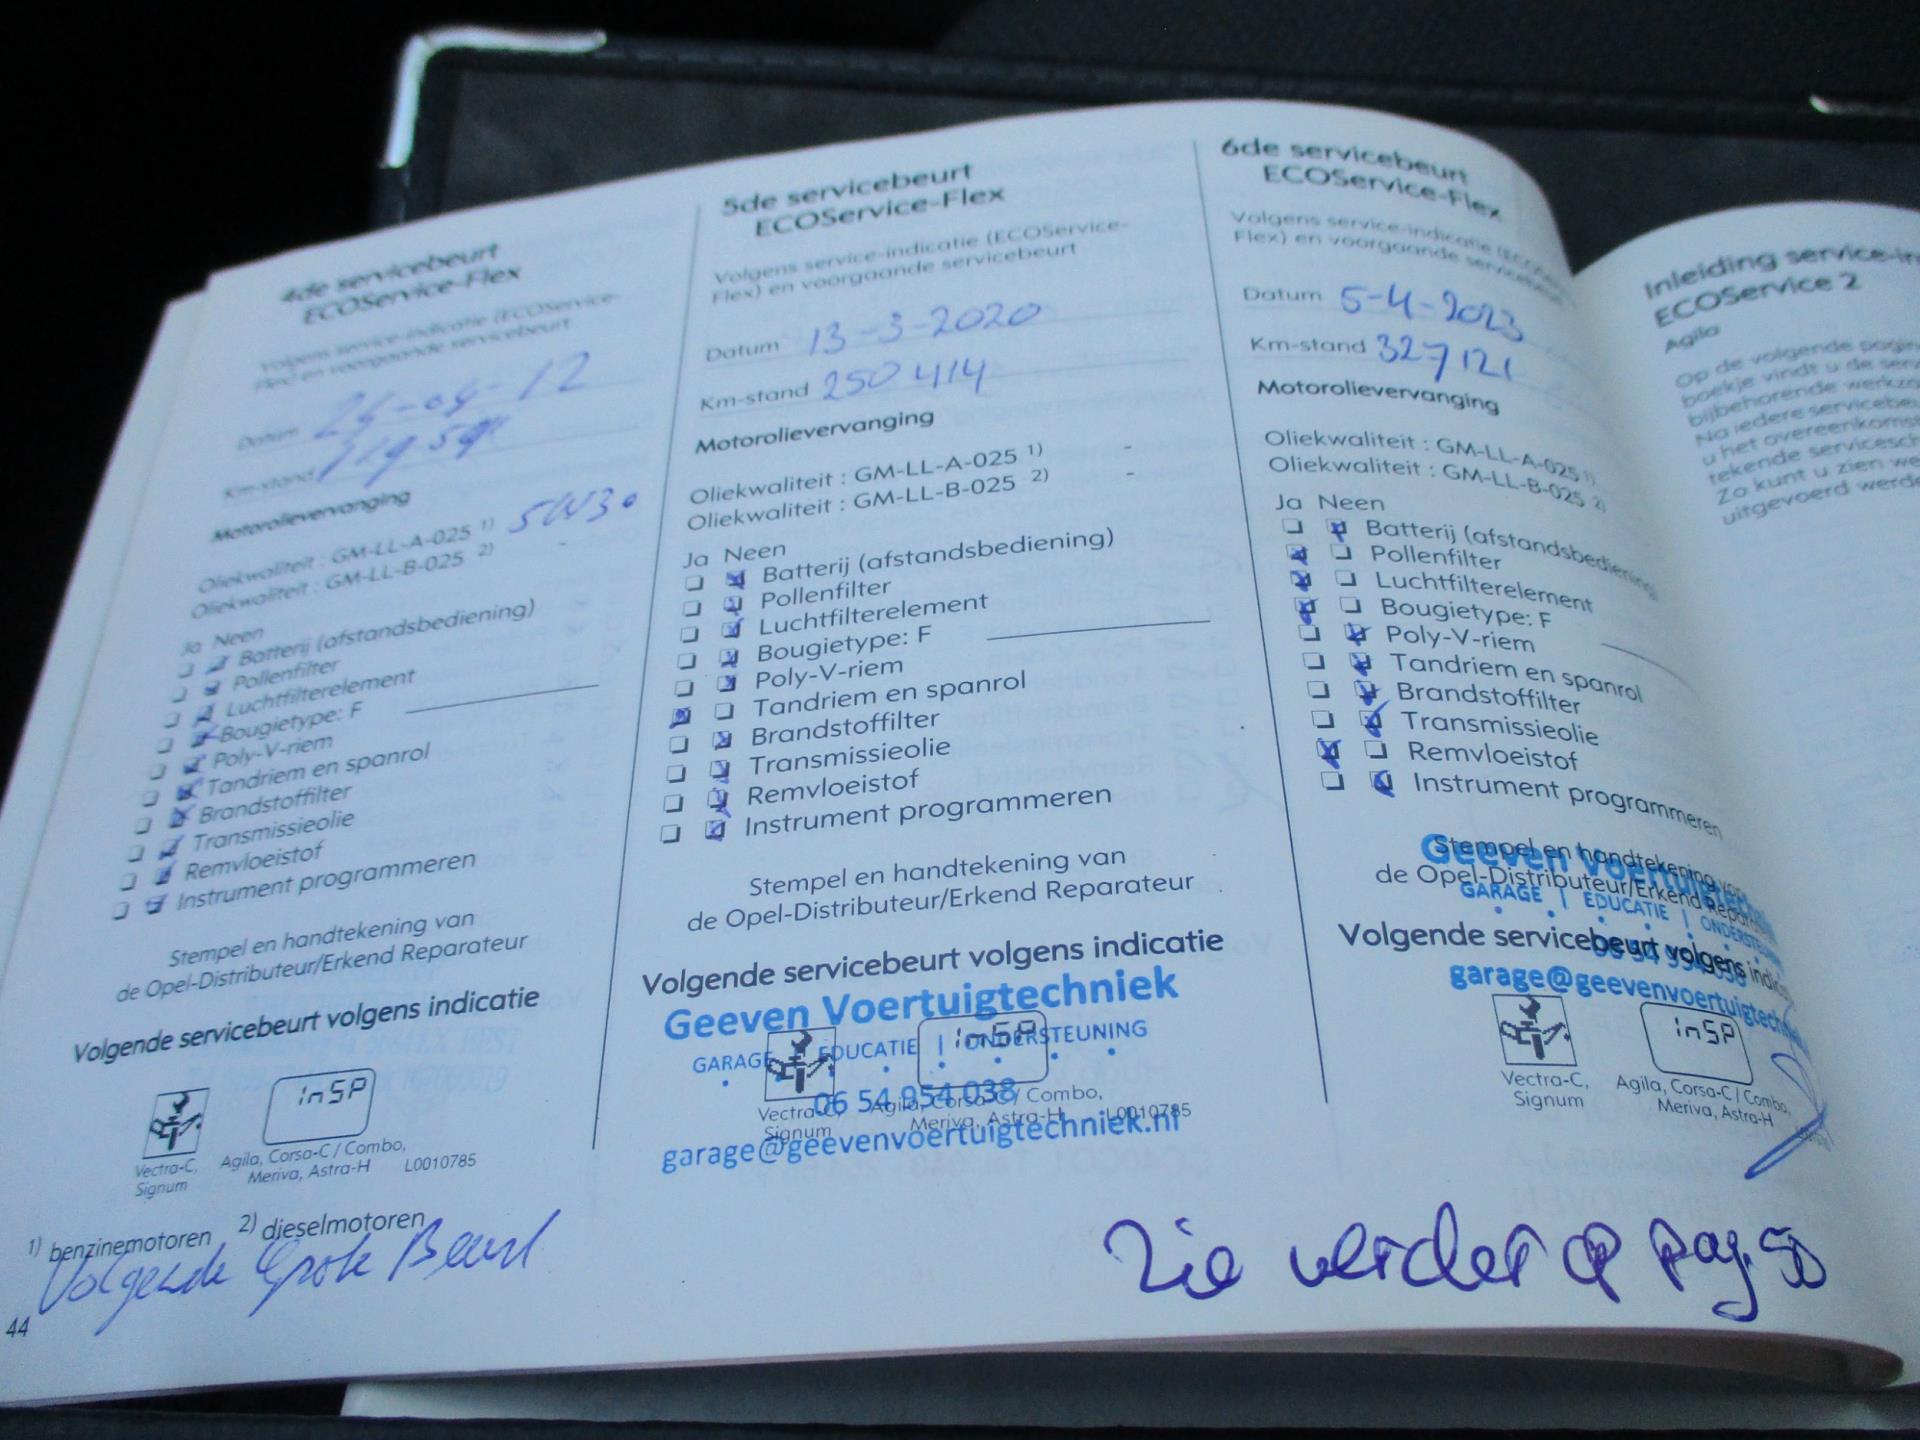 4de servicebeurt
ECOService-Flex
Volgens service-indicatie (ECOService-
Flex) en voorgaande servicebeurt
Datum
Km-stand
Motorolievervanging
Oliekwaliteit : GM-LL-A-025 1) 5W30
Oliekwaliteit : GM-LL-B-025 2) -
Ja Neen
Batterij (afstandsbediening)
Pollenfilter
Luchtfilterelement
Bougietype: F
Poly-V-riem
Tandriem en spanrol
Brandstoffilter
Transmissieolie
Remvloeistof
Instrument programmeren
Stempel en handtekening van
de Opel-Distributeur/Erkend Reparateur
Volgende servicebeurt volgens indicatie
InSP
Vectra-C,
Signum
Agila, Corsa-C / Combo,
Meriva, Astra-H L0010785
1) benzinemotoren 2) dieselmotoren
Volgende Grote Beurt
44
5de servicebeurt
ECOService-Flex
Volgens service-indicatie (ECOService-
Flex) en voorgaande servicebeurt
Datum 13-3-2020
Km-stand 250414
Motorolievervanging
Oliekwaliteit : GM-LL-A-025 1) -
Oliekwaliteit : GM-LL-B-025 2) -
Ja Neen
Batterij (afstandsbediening)
Pollenfilter
Luchtfilterelement
Bougietype: F
Poly-V-riem
Tandriem en spanrol
Brandstoffilter
Transmissieolie
Remvloeistof
Instrument programmeren
Stempel en handtekening van
de Opel-Distributeur/Erkend Reparateur
Volgende servicebeurt volgens indicatie
Geeven Voertuigtechniek
GARAGE | EDUCATIE | ONDERSTEUNING
06 54 954 038
garage@geevenvoertuigtechniek.nl
InSP
Vectra-C,
Signum
Agila, Corsa-C / Combo,
Meriva, Astra-H L0010785
6de servicebeurt
ECOService-Flex
Volgens service-indicatie (ECOService-
Flex) en voorgaande servicebeurt
Datum 5-4-2023
Km-stand 327121
Motorolievervanging
Oliekwaliteit : GM-LL-A-025 1)
Oliekwaliteit : GM-LL-B-025 2)
Ja Neen
Batterij (afstandsbediening)
Pollenfilter
Luchtfilterelement
Bougietype: F
Poly-V-riem
Tandriem en spanrol
Brandstoffilter
Transmissieolie
Remvloeistof
Instrument programmeren
Stempel en handtekening van
de Opel-Distributeur/Erkend Reparateur
Volgende servicebeurt volgens indic
Geeven Voertuigtechniek
GARAGE | EDUCATIE | ONDERSTEUN
garage@geevenvoertuigtechni
InSP
Vectra-C,
Signum
Agila, Corsa-C / Combo,
Meriva, Astra-H
Zie verder op pag. 50
Inleiding service-in
ECOService 2
Agila
Op de volgende pagin
boekje vindt u de serv
bijbehorende werkza
Na iedere servicebeu
u het overeenkomst
tekende servicesch
Zo kunt u zien we
uitgevoerd werde